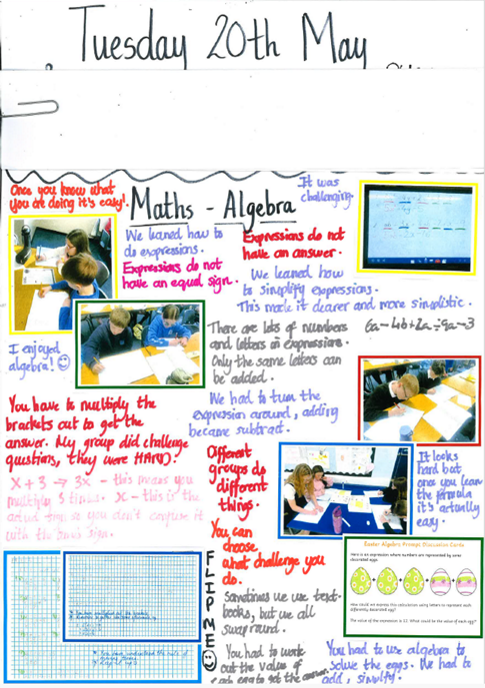 Tuesday 20th May
Once you know what
you are doing it's easy!.
Maths - Algebra
It was
challenging.
We leaned how to
do expressions.
Expressions do not
have an equal sign.
Expressions do not
have an answer.
We leaned how
to simplify expressions.
This made it clearer and more simplistic.
There are lots of numbers
and letters in expressions.
Only the same letters can
be added.
6a-4b+2a÷9a-3
I enjoyed
algebra!
We had to turn the
expression around, adding
became subtract.
You have to multiply the
brackets out to get the
answer. My group did challenge
questions, they were HARD!
x + 3 → 3x - this means you
multiply 3 times. x - this is the
so you don't confuse it
with the sign.
Different
groups do
different
things.
It looks
hard but
once you lean
the formula
it's actually
easy.
You can
choose
what challenge you
do.
FLIP ME
Sometimes we use text-
books, but we all
swap round.
You had to work
out the value of
each egg to get the answer.
Easter Algebra Prompt Discussion Cards
Here is an expression where numbers are represented by some
decorated eggs.
How could we express this calculation using letters to represent each
differently decorated egg?
The value of the expression is 22. What could be the value of each egg?
You had to use algebra to
solve the eggs. We had to
add, simplify.